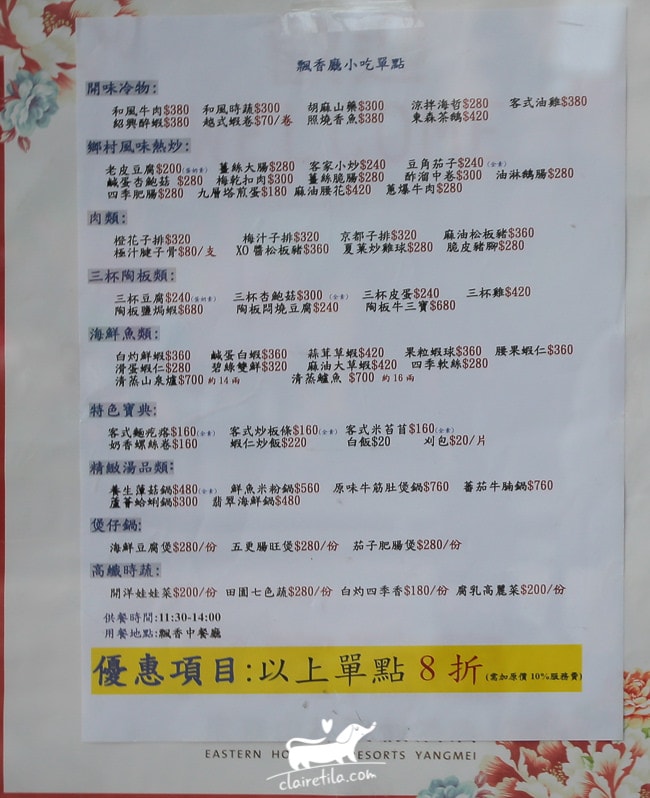 飄香廳小吃單點
開味冷物:
和風牛肉$380 和風時蔬$300 胡麻山藥$300 涼拌海哲$280 客式油雞$380
紹興醉蝦$380 越式蝦卷$70/卷 照燒香魚$380 東森茶鵝$420
鄉村風味熱炒:
老皮豆腐$200(蛋奶素) 薑絲大腸$280 客家小炒$240 豆角茄子$240(全素)
鹹蛋杏鮑菇 $280 梅乾扣肉$300 薑絲脆腸$280 酢溜中卷$300 油淋鵝腸$280
四季肥腸$280 九層塔煎蛋$180 麻油腰花$420 蔥爆牛肉$280
肉類:
橙花子排$320 梅汁子排$320 京都子排$320 麻油松板豬$360
極汁腱子骨$80/支 XO醬松板豬$360 夏葉炒雞球$280 脆皮豬腳$280
三杯陶板類:
三杯豆腐$240(蛋奶素) 三杯杏鮑菇$300 (全素) 三杯皮蛋$240 三杯雞$420
陶板鹽焗蝦$680 陶板悶燒豆腐$240 陶板牛三寶$680
海鮮魚類:
白灼鮮蝦$360 鹹蛋白蝦$360 蒜茸草蝦$420 果粒蝦球$360 腰果蝦仁$360
滑蛋蝦仁$280 碧綠雙鮮$320 麻油大草蝦$420 四季軟絲$280
清蒸山泉爐$700 約14兩 清蒸鱸魚 $700 約16兩
特色寶典:
客式麵疙瘩$160(全素) 客式炒板條$160(全素) 客式米苔苜$160(全素)
奶香螺絲卷$160 蝦仁炒飯$220 白飯$20 刈包$20/片
精緻湯品類:
養生薄菇鍋$480(全素) 鮮魚米粉鍋$560 原味牛筋肚煲鍋$760 蕃茄牛腩鍋$760
蘆薈蛤蜊鍋$300 翡翠海鮮鍋$480
煲仔鍋:
海鮮豆腐煲$280/份 五更腸旺煲$280/份 茄子肥腸煲$280/份
高纖時蔬:
開洋娃娃菜$200/份 田園七色蔬$280/份 白灼四季香$180/份 腐乳高麗菜$200/份
供餐時間:11:30-14:00
用餐地點:飄香中餐廳
優惠項目:以上單點 8 折(需加原價10%服務費)
EASTERN HO ESORTS YANGMEI
clairetila.com